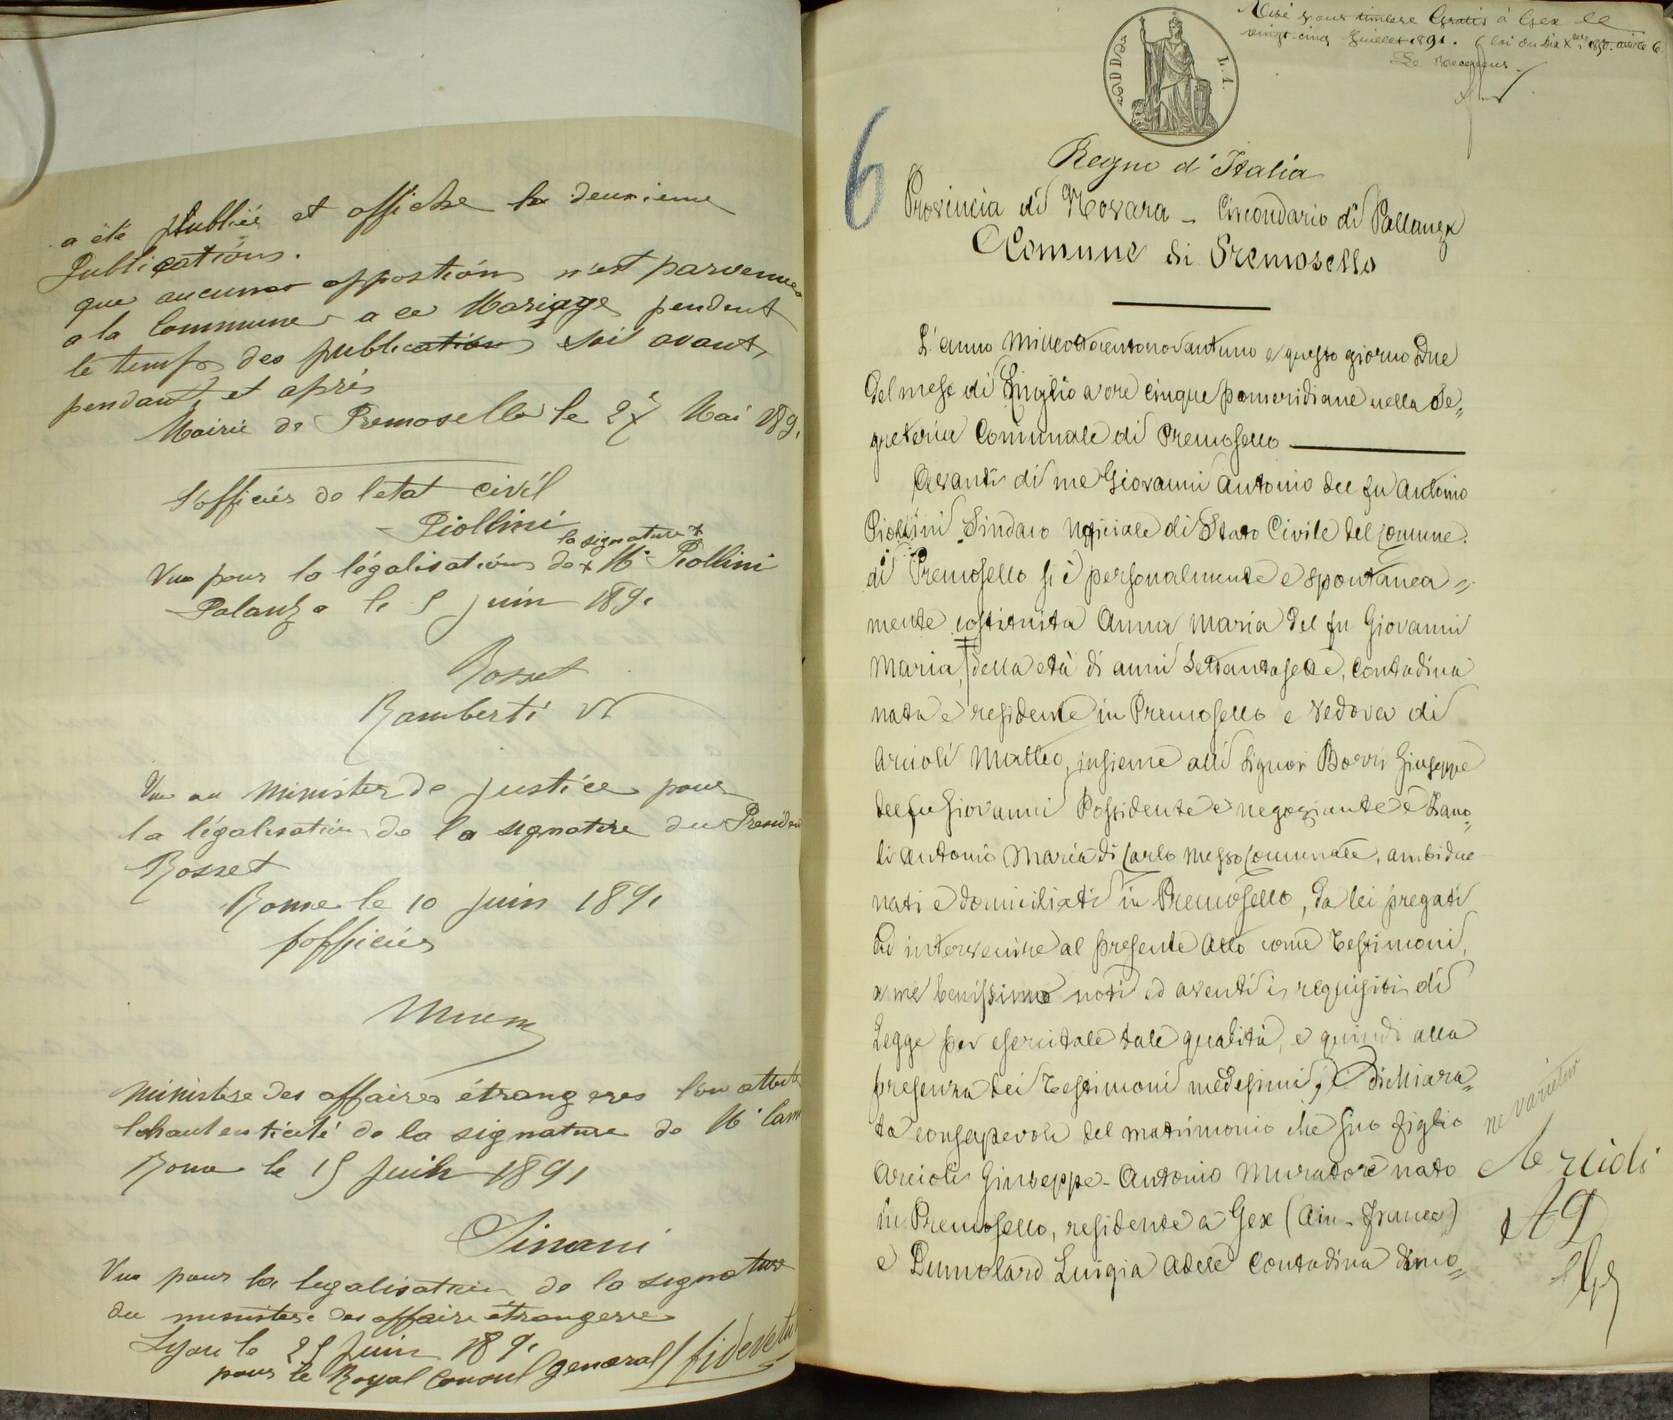 a été Publiée et affiche la deuxieme
Publications.
que aucune oppostión n'est parvenue
a la Commune a ce Mariage pendent
le temps des publication soit avant,
pendant et aprés
Mairie de Premosello le 27 Mai 189,
l'officiér de l'etat civil
Piollini
la signature
Vu pour la légalisatión de x Mr Piollini
Palanza le 5 juin 189,
Rosset
Ramberti
Vu au Minister de justice pour
la légalisation de la signatre du Presiden
Rosset
Rome le 10 juin 1891
l'officiér
Ministere des affaires étrangeres l'on attest
de la signature de Mr
Rome le 15 Juin 1891
Vu pour la legalisation de la signature
du ministere des affaire étrangerre
Lyon le 25 Juin 189,
pour le Royal Consul general
6
Visé pour timbre Gratis à Gex le
vingt cinq Juillet 1891.
Regno d'Italia
Provincia di Novara _ Circondario di Pallanza
Comune di Premosello
L'anno Milleottocentonovantuno e questo giorno Due
del mese di Luglio a ore cinque pomeridiane nella Se„
greteria Comunale di Premosello
Avanti di me Giovanni Antonio del fu Antonio
Piollini Sindaco Ufficiale di Stato Civile del Comune
di Premosello si è personalmente e spontanea„
mente costituita Anna Maria del fu Giovanni
Maria, della età di anni settantasette, contadina
nata e residente in Premosello e vedova di
Arcioli Matteo, insieme alli Signori Borri Giuseppe
del fu Giovanni Possidente e negoziante e
Antonio Maria di Carlo Messo Comunale, ambidue
nati e domiciliati in Premosello, da lei pregati
ad intervenire al presente Atto come Testimoni,
a me benissimo noti ed aventi i requisiti di
Legge per esercitale tale qualità, e quindi alla
presenza dei Testimoni medesimi, dichiara„
ta consapevole del matrimonio che suo figlio
Arcioli Giuseppe - Antonio Muratore nato
in Premosello, residente a Gex (Ain - France)
e Dumolard Luigia Adele Contadina dimo„
ne varietur
Arcioli